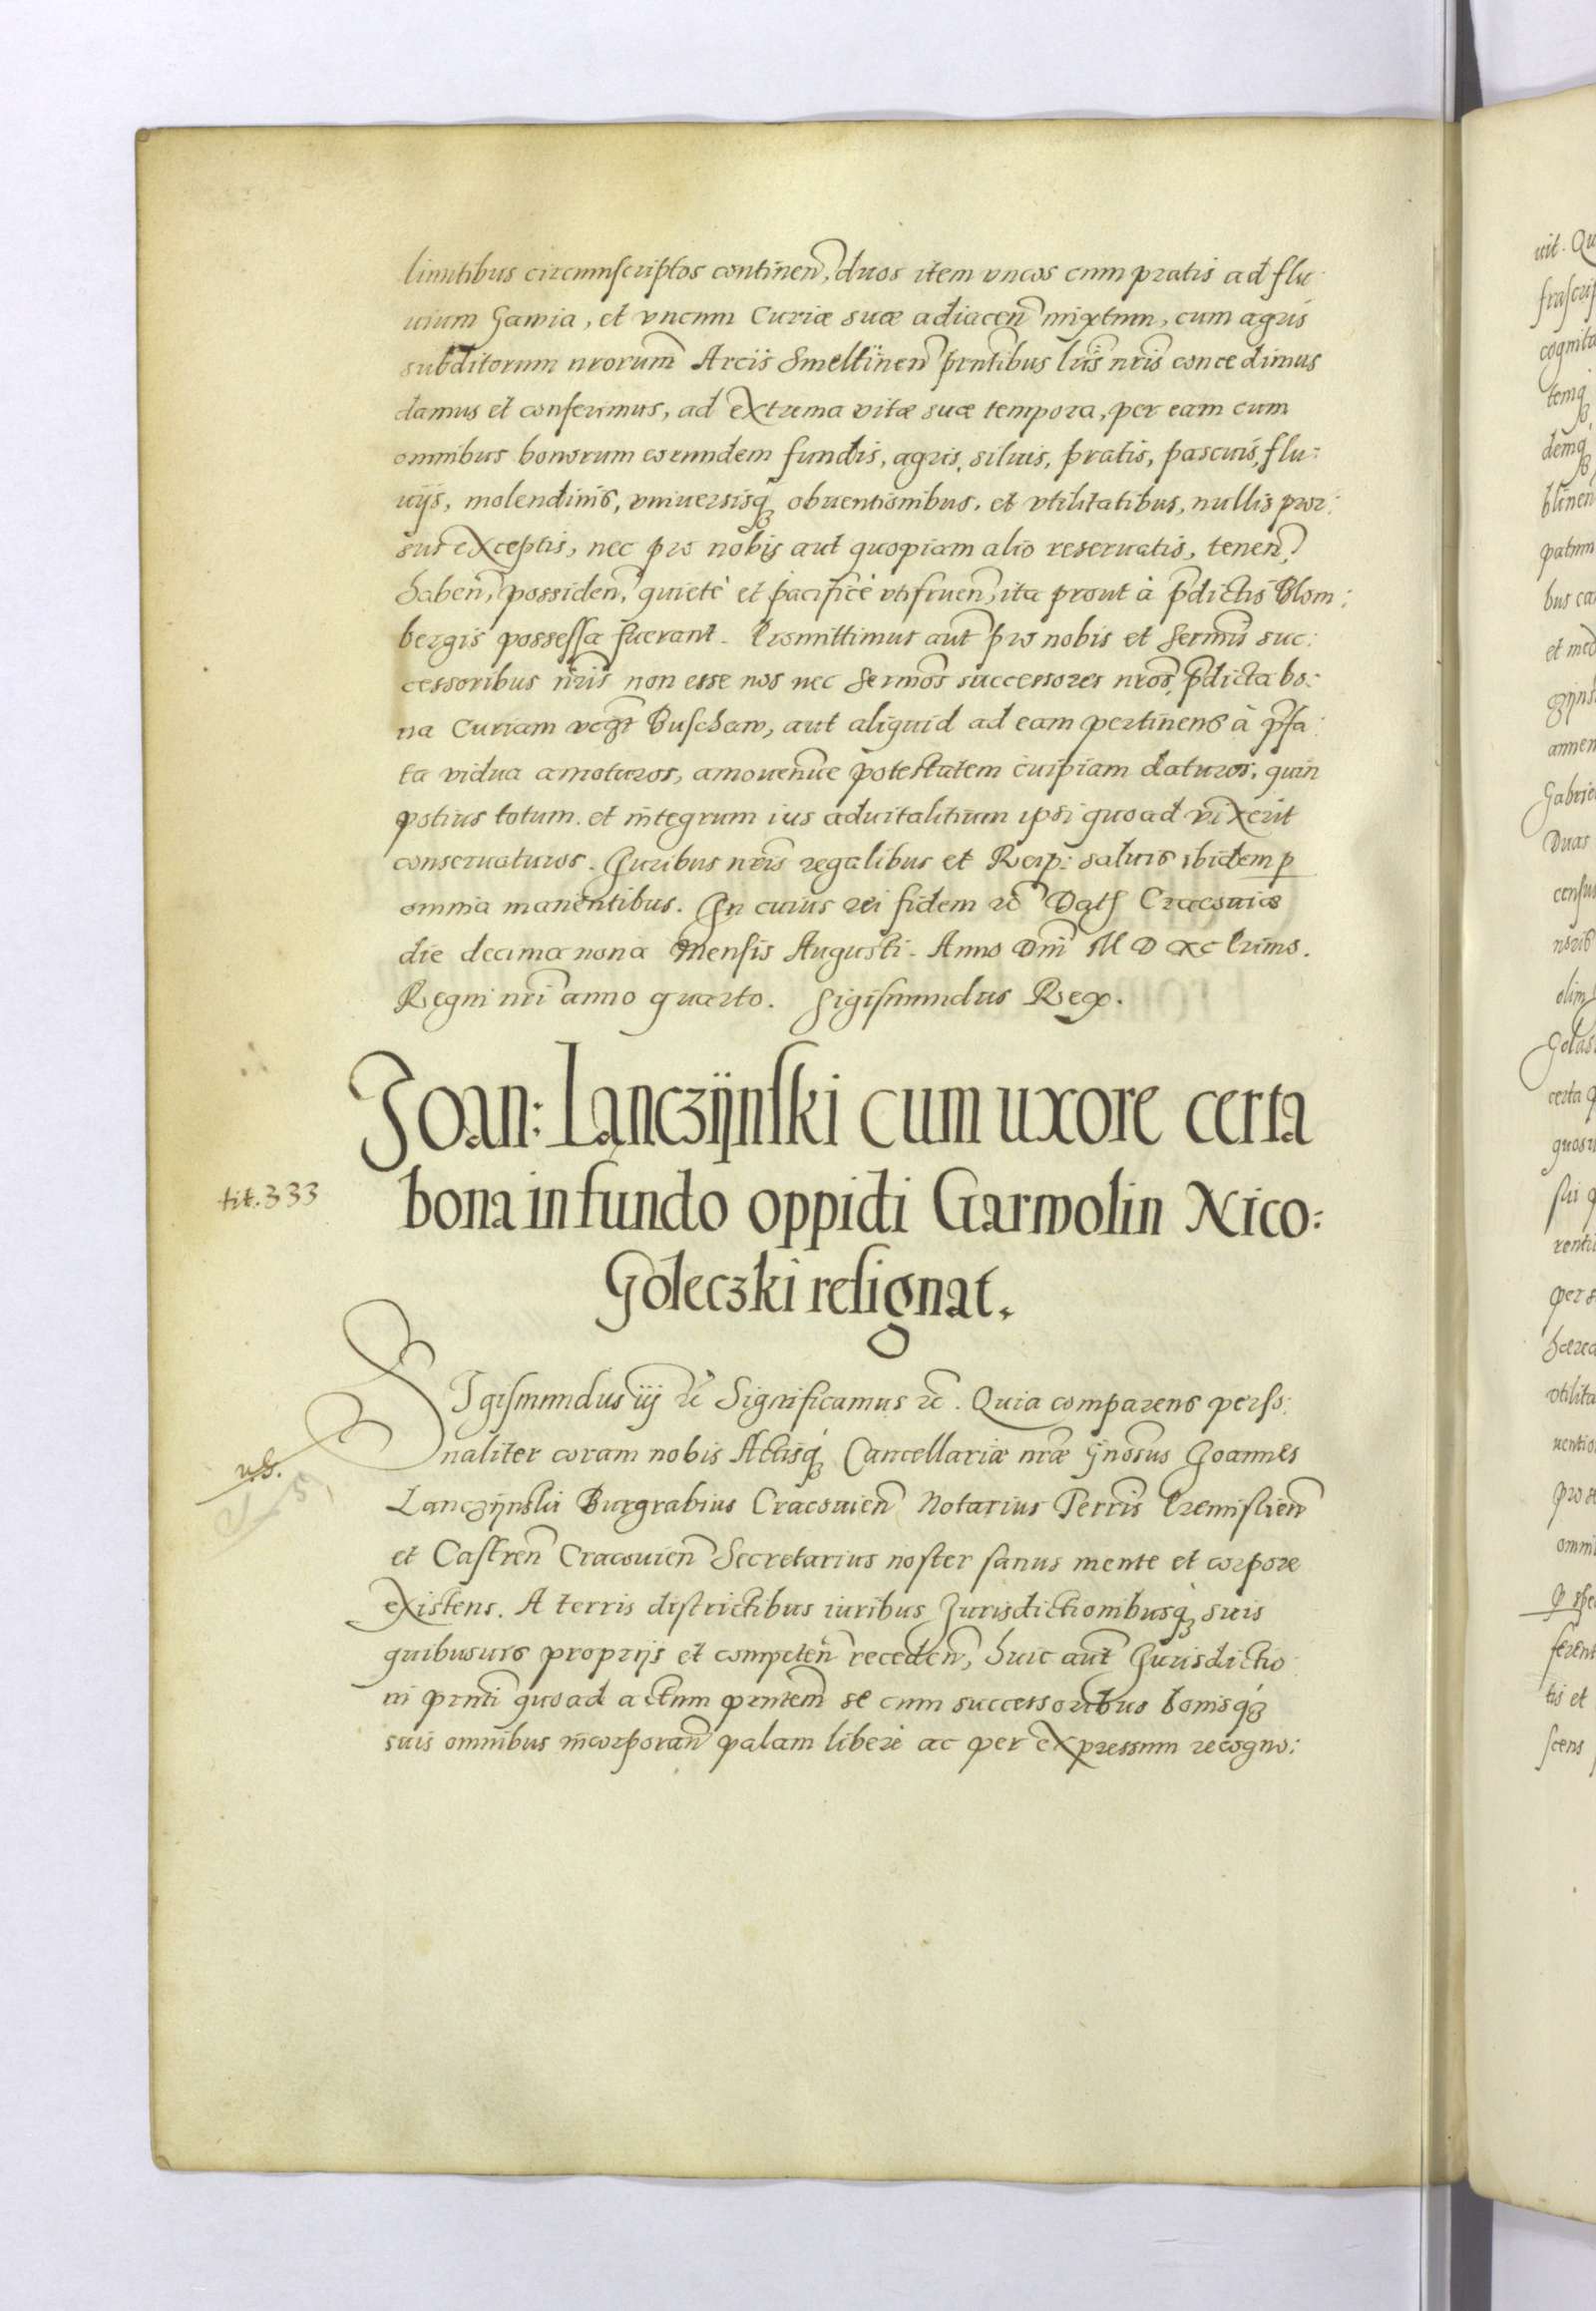 limitibus circumscriptos continen, duos item vncos cum pratis ad flu
uium Gawia, et vncum Curiæ suæ adiacen mixtum, cum agris
subditorum nrorum Arcis Smeltinen prntibus lris nris concedimus
damus et conferimus, ad extrema vitæ suæ tempora, per eam cum
omnibus bonorum eorundem fundis, agris, siluis, pratis, pascuis, flu:
uijs, molendinis, vniuersisq; obuentionibus, et vtilitatibus, nullis pror:
sus exceptis, nec pro nobis aut quopiam alio reseruatis, tenen,
haben, possiden, quietè et pacificè vtifruen, ita prout à pdictis Blom:
bergis possessa fuerant. Promittimus aut pro nobis et Sermis suc:
cessoribus nris non esse nos nec Sermos successores nros, pdicta bo:
na Curiam Buschaw, aut aliquid ad eam pertinens à pfa:
ta vidua amoturos, amouendue potestatem cuipiam daturos, quin
potius totum et integrum ius aduitalitium ipsi quoad vixerit
conseruaturos. Juribus nris regalibus et Reip: saluis ibidem p
omnia manentibus. In cuius rei fidem rc Dat Cracouiæ
die decima nona Mensis Augusti. Anno Dni M D XC Primo.
Regni nri anno quarto. Sigismundus Rex.
Joan: Lanczijnski cum uxore certa
tit. 333
bona in fundo oppidi Garwolin Nico:
Goleczki resignat.
Sigismundus iij rc Significamus rc. Quia comparens perso:
naliter coram nobis Actisq; Cancellariæ nræ gnosus Joannes
Lanczijnski Burgrabius Cracouien Notarius Terris Premislien
et Castren Cracouien Secretarius noster sanus mente et corpore
existens. A terris districtibus iuribus Jurisdictionibusq; suis
quibusuis proprijs et competen receden, huic aut Jurisdictio
ni prnti quoad actum prntem se cum successoribus bonisq;
suis omnibus incorporan palam liberè ac per expressum recogno: